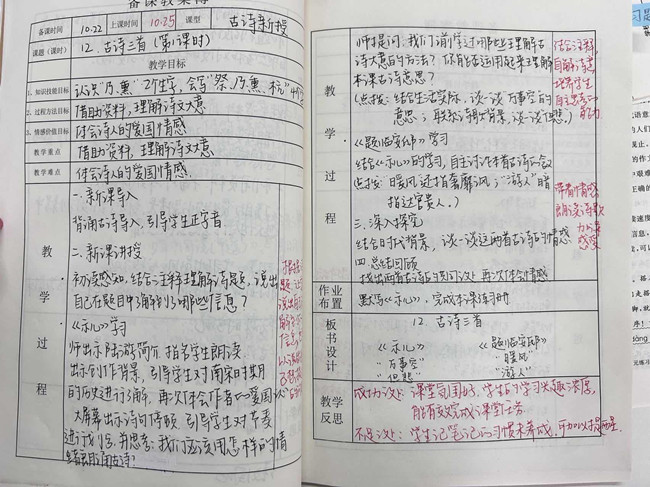 备课教案簿
备课时间 10.22 上课时间 10.25 课型 古诗新授
课题(课时) 12.古诗三首(第1课时)
教学目标
1.知识技能目标 认识"乃、熏"2个生字,会写"祭、乃、熏、杭"4个字
2.过程方法目标 借助资料,理解诗文大意
3.情感价值目标 体会诗人的爱国情感
教学重点 借助资料,理解诗文大意
教学难点 体会诗人的爱国情感
教学过程
一.新课导入
背诵古诗导入,引导学生正字音
二.新课讲授
初读感知,结合注释理解诗题,说出
自己在题目中了解到了哪些信息?
《示儿》学习
师出示陆游简介,指名学生朗读
出示创作背景,引导学生对南宋时期
的历史进行了解,再次体会作者的爱国
大屏幕出示诗句停顿,引导学生对节奏
进行划分,并思考:我们应该用怎样的情
绪去朗诵古诗?
教学过程
师提问:我们之前学过哪些理解古
诗大意的方法?你能否运用起来理解
本课古诗意思?
(点拨:结合生活实际,谈一谈万事空的
意思;联系诗歌背景,谈一谈但悲)
《题临安邸》学习
结合《示儿》的学习,自主讨论本首古诗的含义
(点拨:"暖风"还指奢靡之风;"游人"暗
指达官贵人。)
三.深入探究
结合时代背景,谈一谈这两首古诗的情感
四.总结回顾
找出两首古诗的共同之处,再次体会情感
结合注释
自解诗意
培养学生
自主思考
能力
带着情感
朗读诗歌
感受
作业布置
默写《示儿》,完成本课练习册
板书设计
12.古诗三首
《示儿》 《题临安邸》
"万事空" "暖风"
"但悲" "游人"
教学反思
成功之处:课堂氛围好,学生的学习兴趣浓厚,
能有效完成课堂任务
不足之处:学生记笔记的习惯未养成,可加以提醒